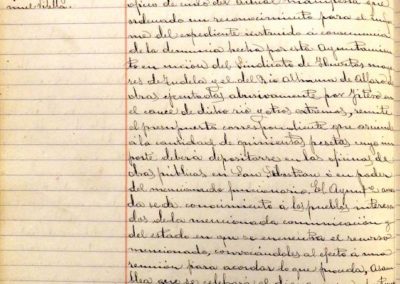 oficio de ordo del actual manifiesta que
ordenado un reconocimiento para el infor
me del expediente instruido á consecuencia
de la denuncia hecha por este Ayuntamien
to en union del Sindicato de Huertas mayo
res de Tudela y el del Rio Alhama de Alfaro
obras ejecutadas abusivamente por Fitero en
el cauce de dicho rio y otros extremos, remite
el presupuesto correspondiente que asciende
á la cantidad de quinientas pesetas cuyo im
porte deberá depositarse en las oficinas de
obras públicas en San Sebastian ó en poder
del mencionado funcionario. El Aynt.º acor
da se dé conocimiento á los pueblos interesa
dos de la mencionada comunicacion y
del estado en que se encuentra el recurso
mencionado, convocándoles al efecto á una
reunion para acordar lo que proceda, Asam
blea que se celebrará el dia